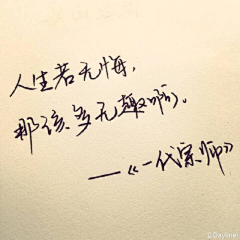 人生若无悔,
那该多无趣啊。
—《一代宗师》